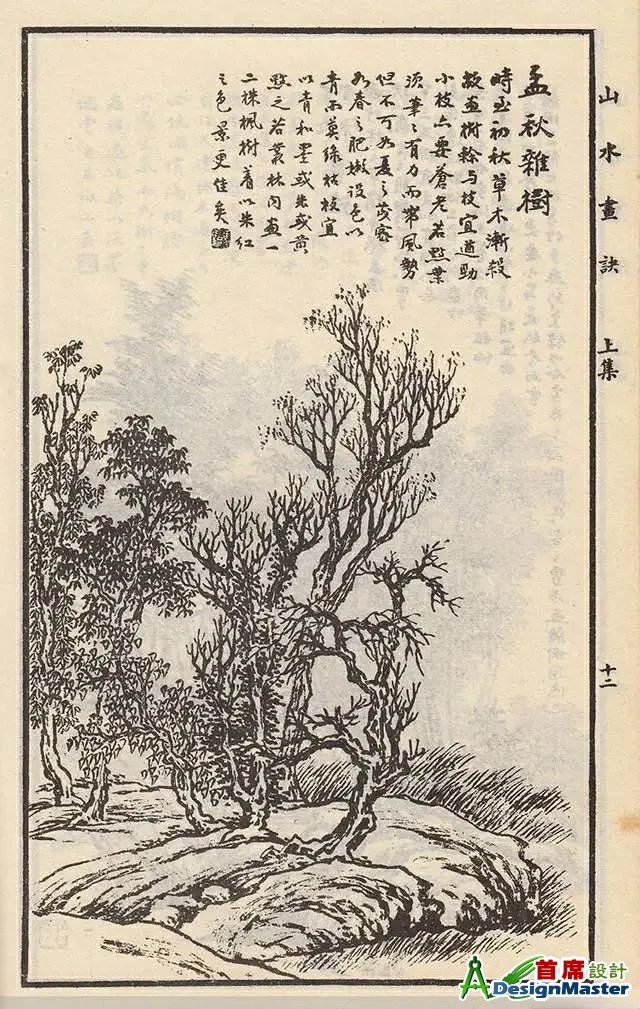 山水畫訣 上集
十二
孟秋雜樹
時至初秋草木漸殺
故画樹榦与枝宜遒勁
小枝亦要蒼老若點葉
須筆〻有力而帶風勢
但不可如夏之茂密
如春之肥嫩設色以
青而莫綠枯枝宜
以青和墨或朱或黄
點之若叢林内画一
二株楓樹着以朱紅
之色景更佳矣
首席設計
DesignMaster